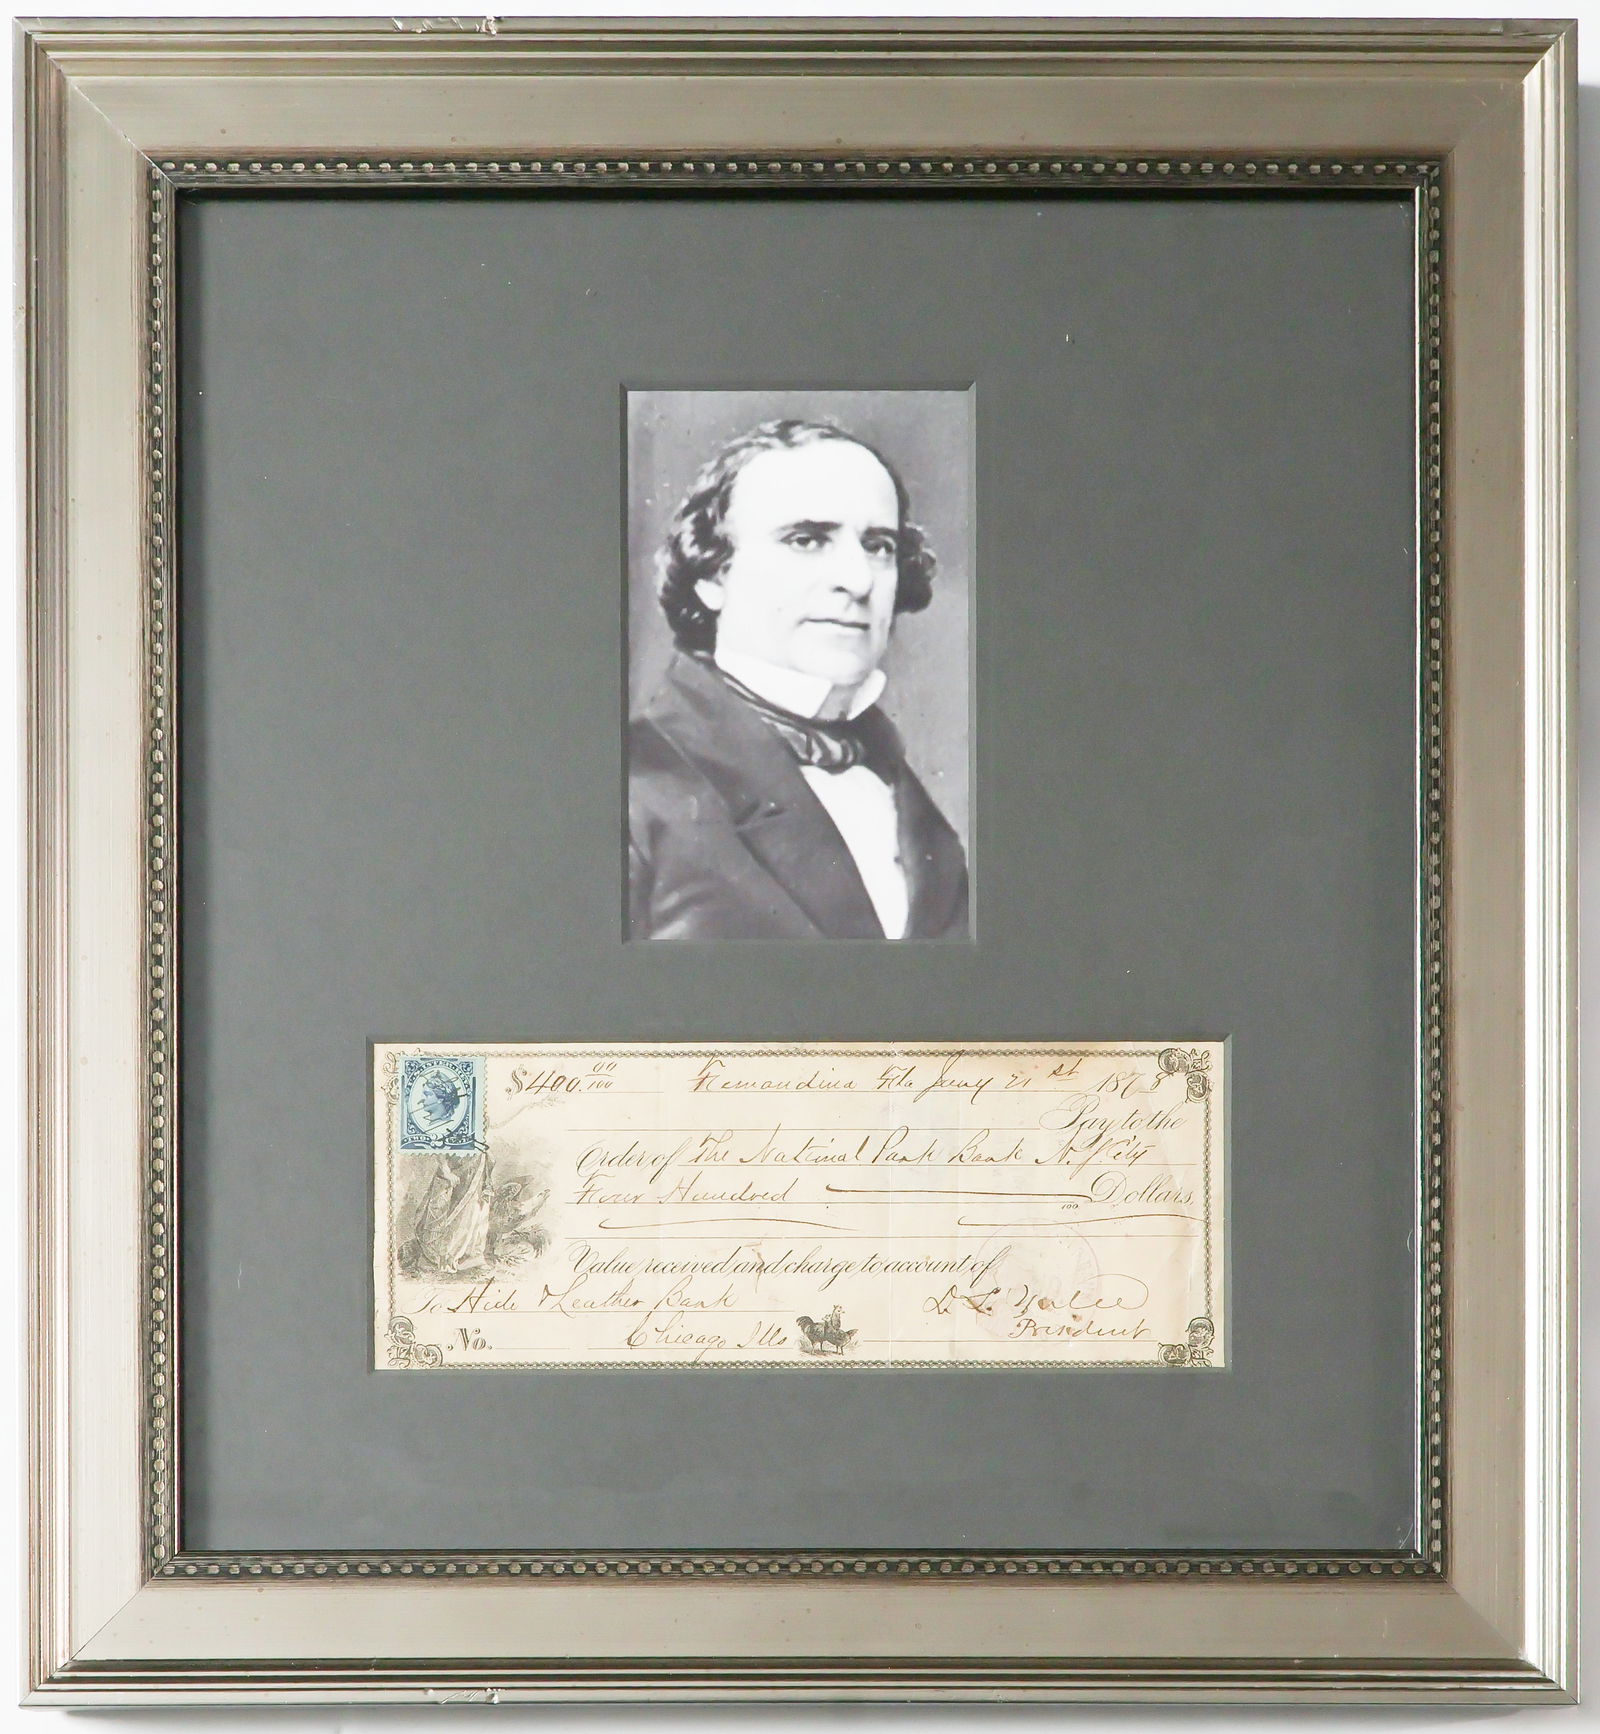 U.S. INTER. REV.
TWO 2 CTS.
$400.00/100 Fernandina Fla Jany 21st 1878
Pay to the
Order of The National Park Bank N. Y. City
Four Hundred Dollars
100
Value received and charge to account of
To Hide & Leather Bank D. L. Yulee
No. Chicago Ills President